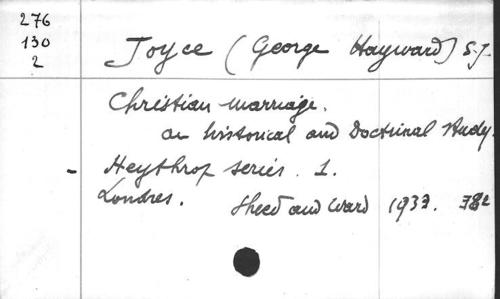 276
130
2
Joyce (George Hayward) S.J.
Christian marriage.
an historical and Doctrinal Study.
- Heythrop series. 1.
Londres. Sheed and Ward 1933. 382